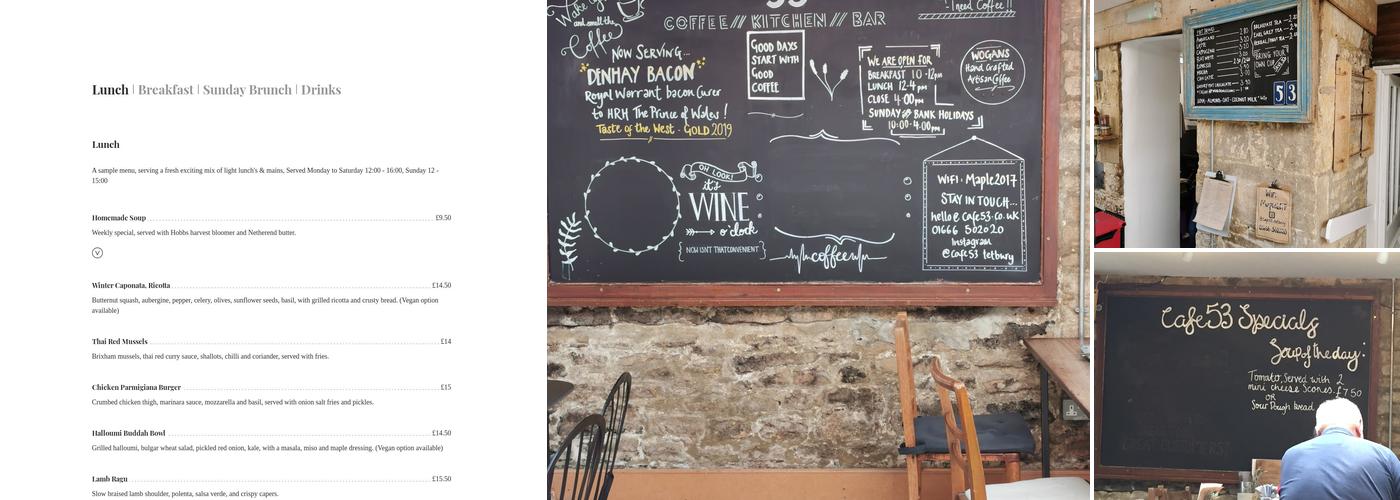 Lunch | Breakfast | Sunday Brunch | Drinks
Lunch
A sample menu, serving a fresh exciting mix of light lunch's & mains, Served Monday to Saturday 12:00 - 16:00, Sunday 12 -
15:00
Homemade Soup £9.50
Weekly special, served with Hobbs harvest bloomer and Netherend butter.
V
Winter Caponata, Ricotta £14.50
Butternut squash, aubergine, pepper, celery, olives, sunflower seeds, basil, with grilled ricotta and crusty bread. (Vegan option
available)
Thai Red Mussels £14
Brixham mussels, thai red curry sauce, shallots, chilli and coriander, served with fries.
Chicken Parmigiana Burger £15
Crumbed chicken thigh, marinara sauce, mozzarella and basil, served with onion salt fries and pickles.
Halloumi Buddah Bowl £14.50
Grilled halloumi, bulgar wheat salad, pickled red onion, kale, with a masala, miso and maple dressing. (Vegan option available)
Lamb Ragu £15.50
Slow braised lamb shoulder, polenta, salsa verde, and crispy capers.
and smell the
Coffee
COFFEE // KITCHEN // BAR
I need Coffee!!
NOW SERVING...
DENHAY BACON
Royal Warrant bacon Curer
to HRH The Prince of Wales!
Taste of the West - GOLD 2019
GOOD DAYS
START WITH
GOOD
COFFEE
WE ARE OPEN FOR
BREAKFAST 10-12pm
LUNCH 12-4pm
CLOSE 4:00pm
SUNDAY & BANK HOLIDAYS
10:00-4:00pm
WOGANS
Hand Crafted
Artisan Coffee
OH LOOK!
it's
WINE
o'clock
NOW ISN'T THAT CONVENIENT
coffee
WIFI: Maple2017
STAY IN TOUCH...
hello@cafe53.co.uk
01666 502020
Instagram
@cafe53 tetbury
HOT DRINKS
AMERICANO
LATTE
CAPPUCCINO
FLAT WHITE
ESPRESSO
MOCHA
BREAKFAST TEA
EARL GREY TEA
HERBAL/FRUIT TEA
BRING YOUR
OWN CUP
53
Cafe53 Specials
Soup of the day:
Tomato, Served with 2
mini cheese Scones. £7.50
OR
Sour Dough bread